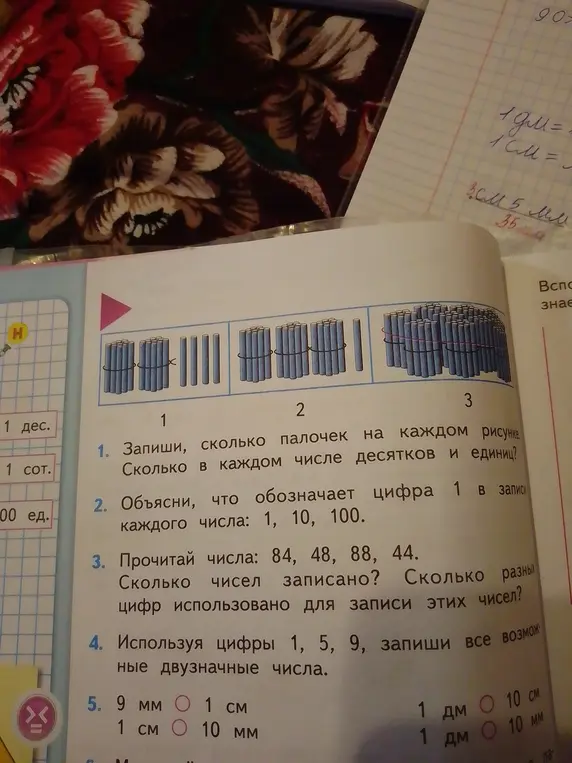 1 дм =
1 см =
3см 5 мм
35
Н
1 дес.
1 сот.
00 ед.
1 2 3
1. Запиши, сколько палочек на каждом рисунке.
Сколько в каждом числе десятков и единиц?
2. Объясни, что обозначает цифра 1 в запис
каждого числа: 1, 10, 100.
3. Прочитай числа: 84, 48, 88, 44.
Сколько чисел записано? Сколько разны
цифр использовано для записи этих чисел?
4. Используя цифры 1, 5, 9, запиши все возмож
ные двузначные числа.
5. 9 мм ○ 1 см 1 дм ○ 10 см
1 см ○ 10 мм 1 дм ○ 10 мм
Вспо
знае